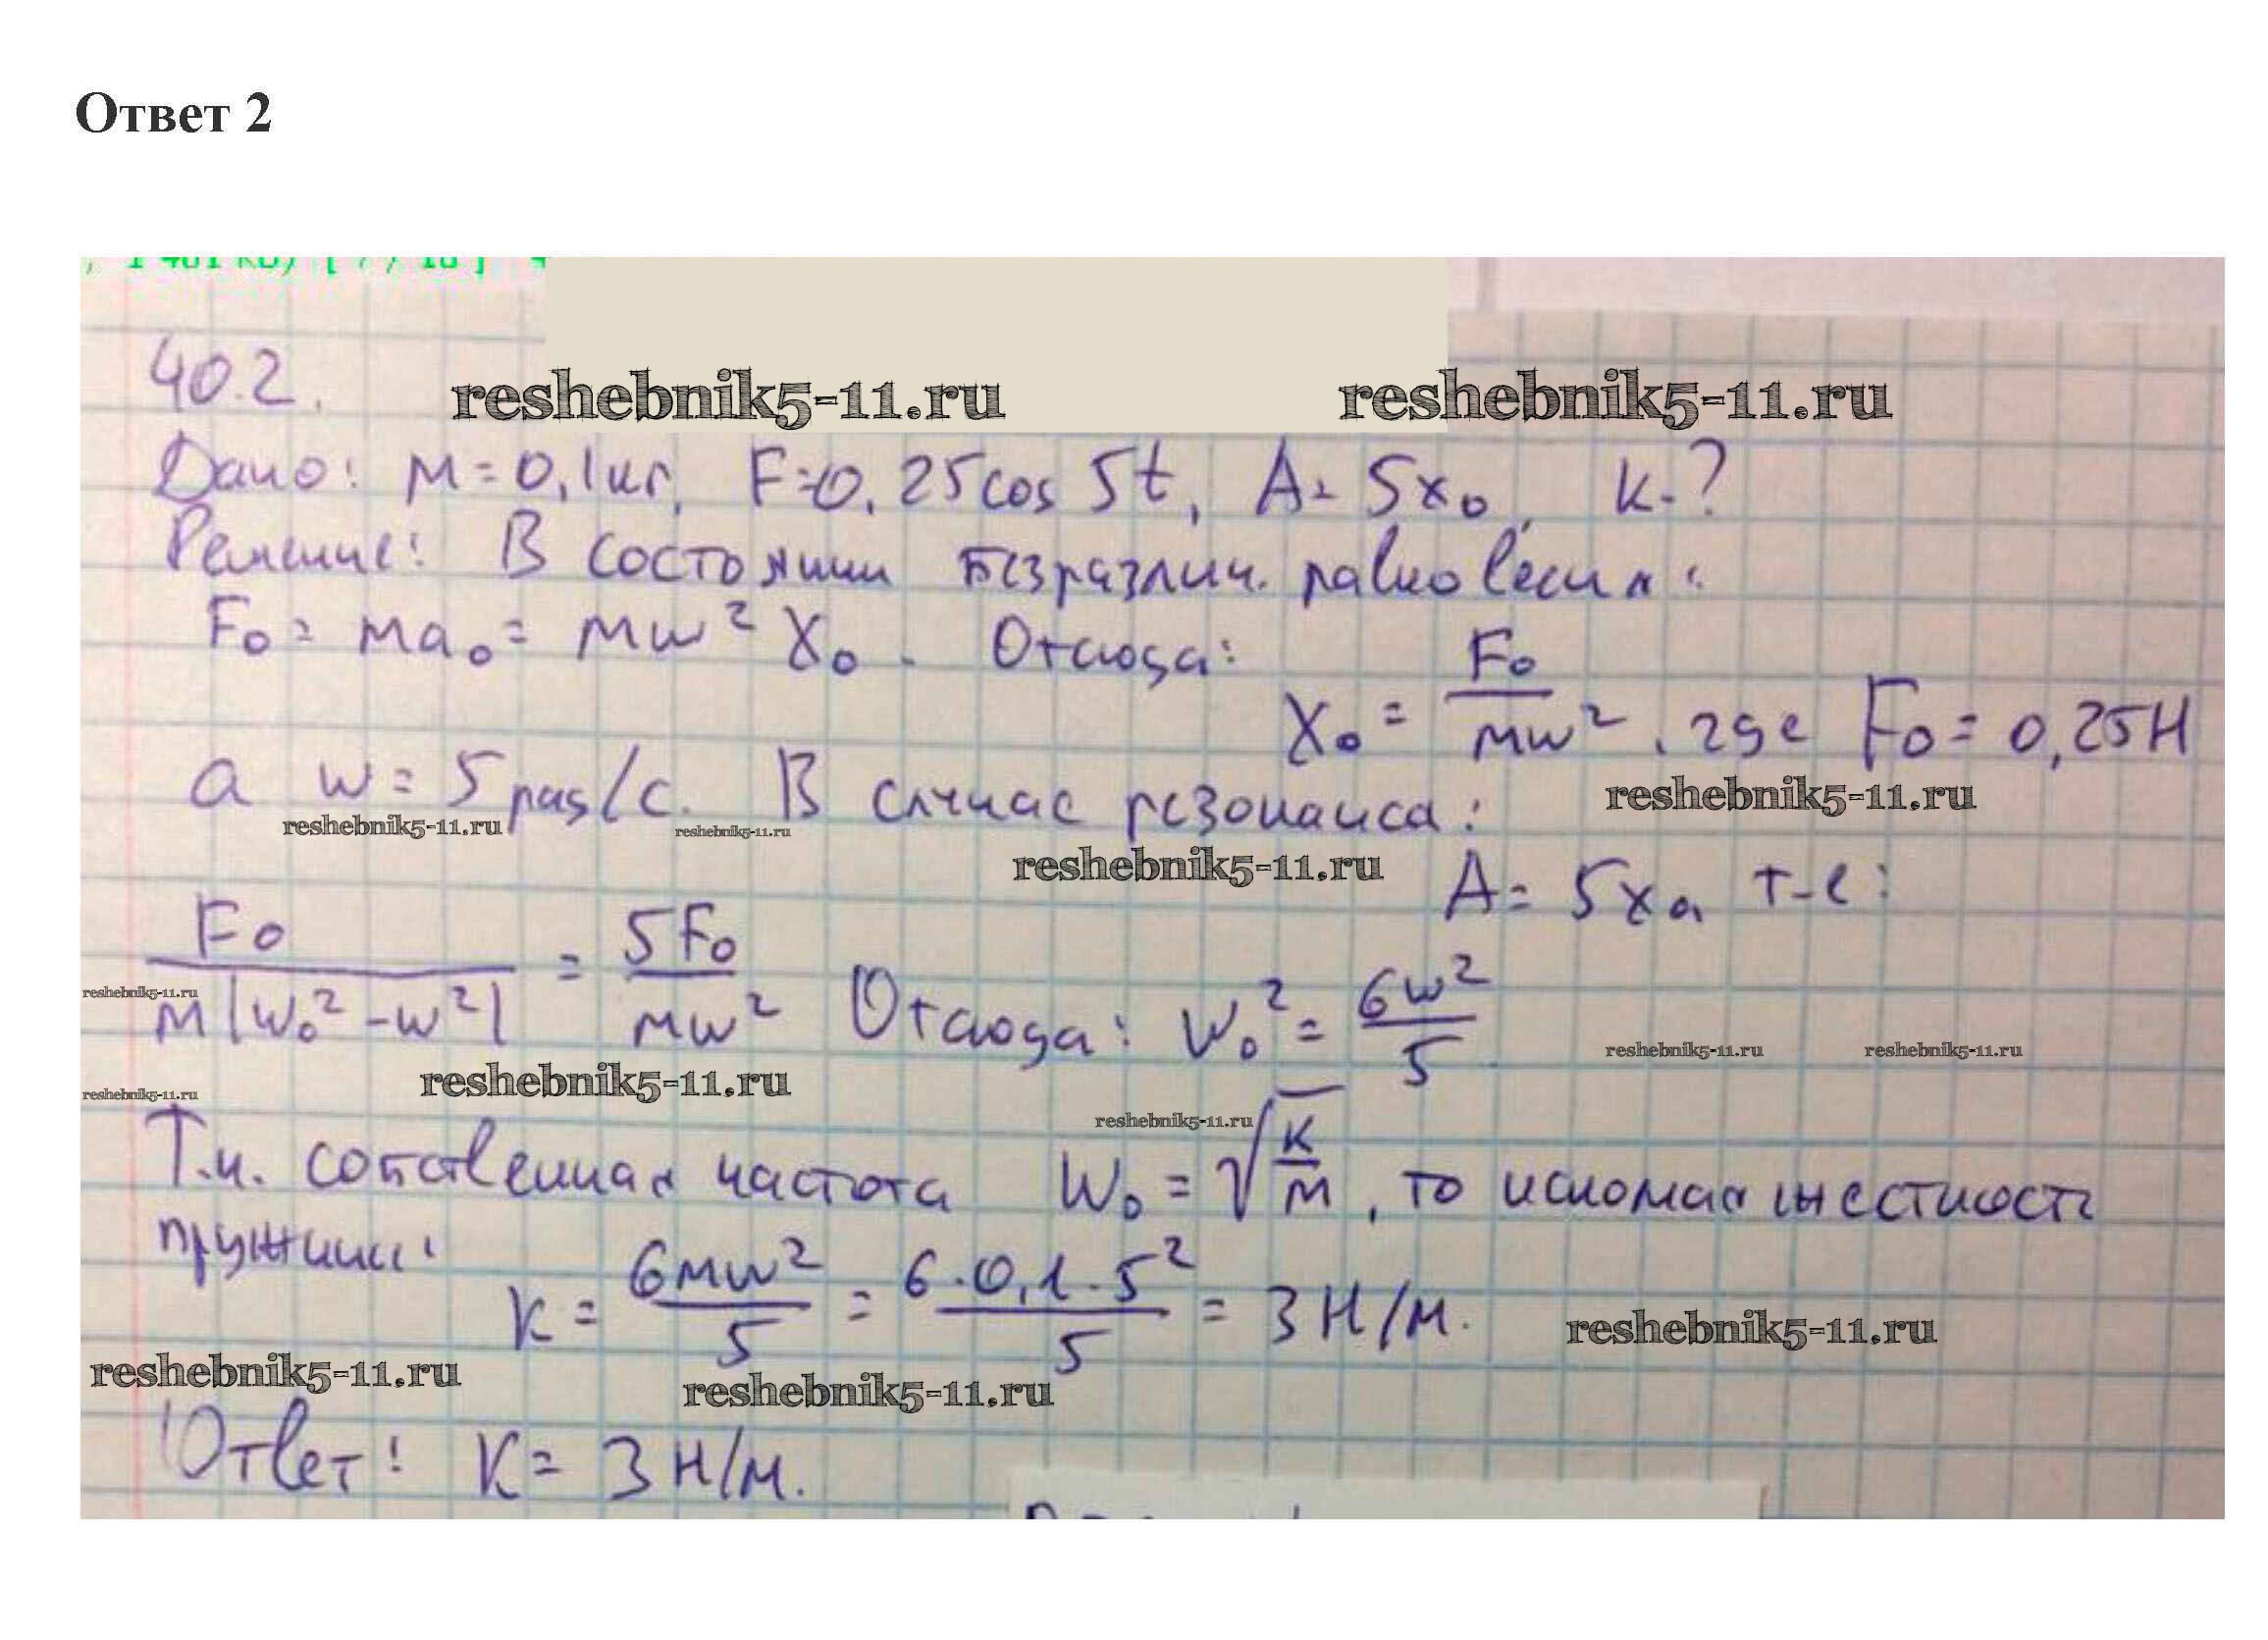 Ответ 2
40.2.
reshebnik5-11.ru reshebnik5-11.ru
Дано: m = 0,1 кг, F = 0,25 cos 5t, A = 5x₀, k - ?
Решение: В состоянии безразлич. равновесия:
F₀ = ma₀ = mw² X₀. Отсюда:
X₀ = F₀ / mw², где F₀ = 0,25 Н
а w = 5 рад/с. В случае резонанса:
reshebnik5-11.ru reshebnik5-11.ru reshebnik5-11.ru reshebnik5-11.ru
A = 5x₀, т-е:
F₀ / m|w₀² - w²| = 5F₀ / mw² Отсюда: w₀² = 6w² / 5
reshebnik5-11.ru reshebnik5-11.ru reshebnik5-11.ru
reshebnik5-11.ru reshebnik5-11.ru reshebnik5-11.ru
Т.к. собственная частота w₀ = √(к/m), то искомая жесткость
пружины:
k = 6mw² / 5 = 6·0,1·5² / 5 = 3 Н/м.
reshebnik5-11.ru
reshebnik5-11.ru reshebnik5-11.ru
Ответ: K = 3 Н/м.